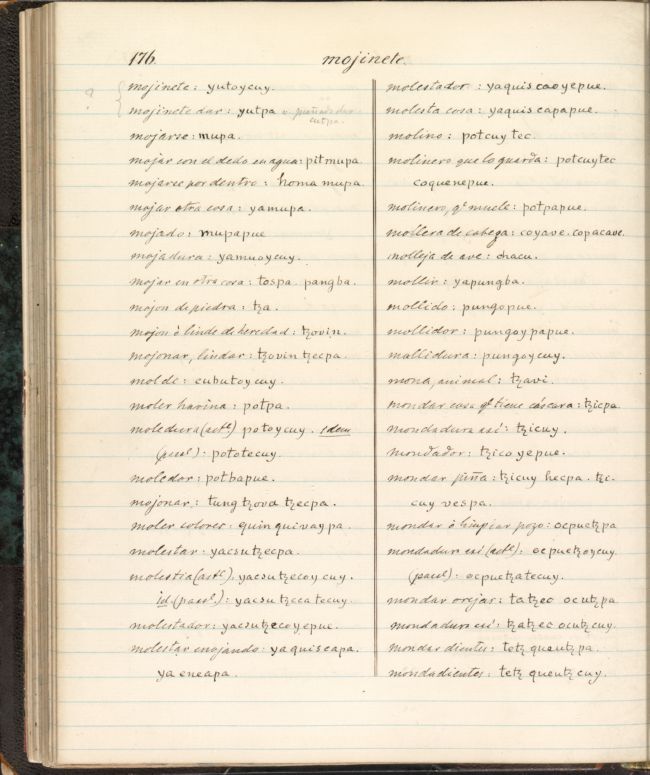 176
mojinete.
mojinete: yutoycuy.
mojinete dar: yutpa
cutpa.
mojarse: mupa.
mojar con el dedo en agua: pitmupa.
mojarse por dentro: homa mupa.
mojar otra cosa: yamupa.
mojado: mupapue
mojadura: yamuoycuy.
mojar en otra cosa: tospa. pangba.
mojon de piedra: tza.
mojon ò linde de heredad: tzovin.
mojonar, lindar: tzovin tzecpa.
molde: cubutoycuy.
moler harina: potpa.
moledura (actl) potoycuy. idem
(pasl): pototecuy.
moledor: potbapue.
mojonar: tung tzova tzecpa.
moler colores: quinquivaypa.
molestar: yacsutzecpa.
molestia (actl): yacsutzecoycuy.
id (pasl.): yacsutzecatecuy.
molestador: yacsutzecoyepue.
molestar enojando: yaquiscapa.
ya eneapa.
molestador: yaquiscaoyepue.
molesta cosa: yaquiscapapue.
molino: potcuytec.
molinero que lo guarda: potcuytec
coquenepue.
molinero, qe muele: potpapue.
mollera de cabeza: coyave. copacave.
molleja de ave: chacu.
mollir: yapungba.
mollido: pungopue.
mollidor: pungoypapue.
mallidura: pungoycuy.
mona, animal: tzavi.
mondar cosa qe tiene cáscara: tzicpa.
mondadura asi: tzicuy.
mondador: tzicoyepue.
mondar piña: tzicuy hecpa. tzi-
cuy vespa.
mondar ò limpiar pozo: ocpuetzpa
mondadura asi (actl): ocpuetzoycuy.
(pasl): ocpuetzatecuy.
mondar orejas: tatzec ocutzpa
mondadura asi: tzatzec ocutzcuy.
mondar dientes: tetz queutzpa.
mondadientes: tetz queutzcuy.